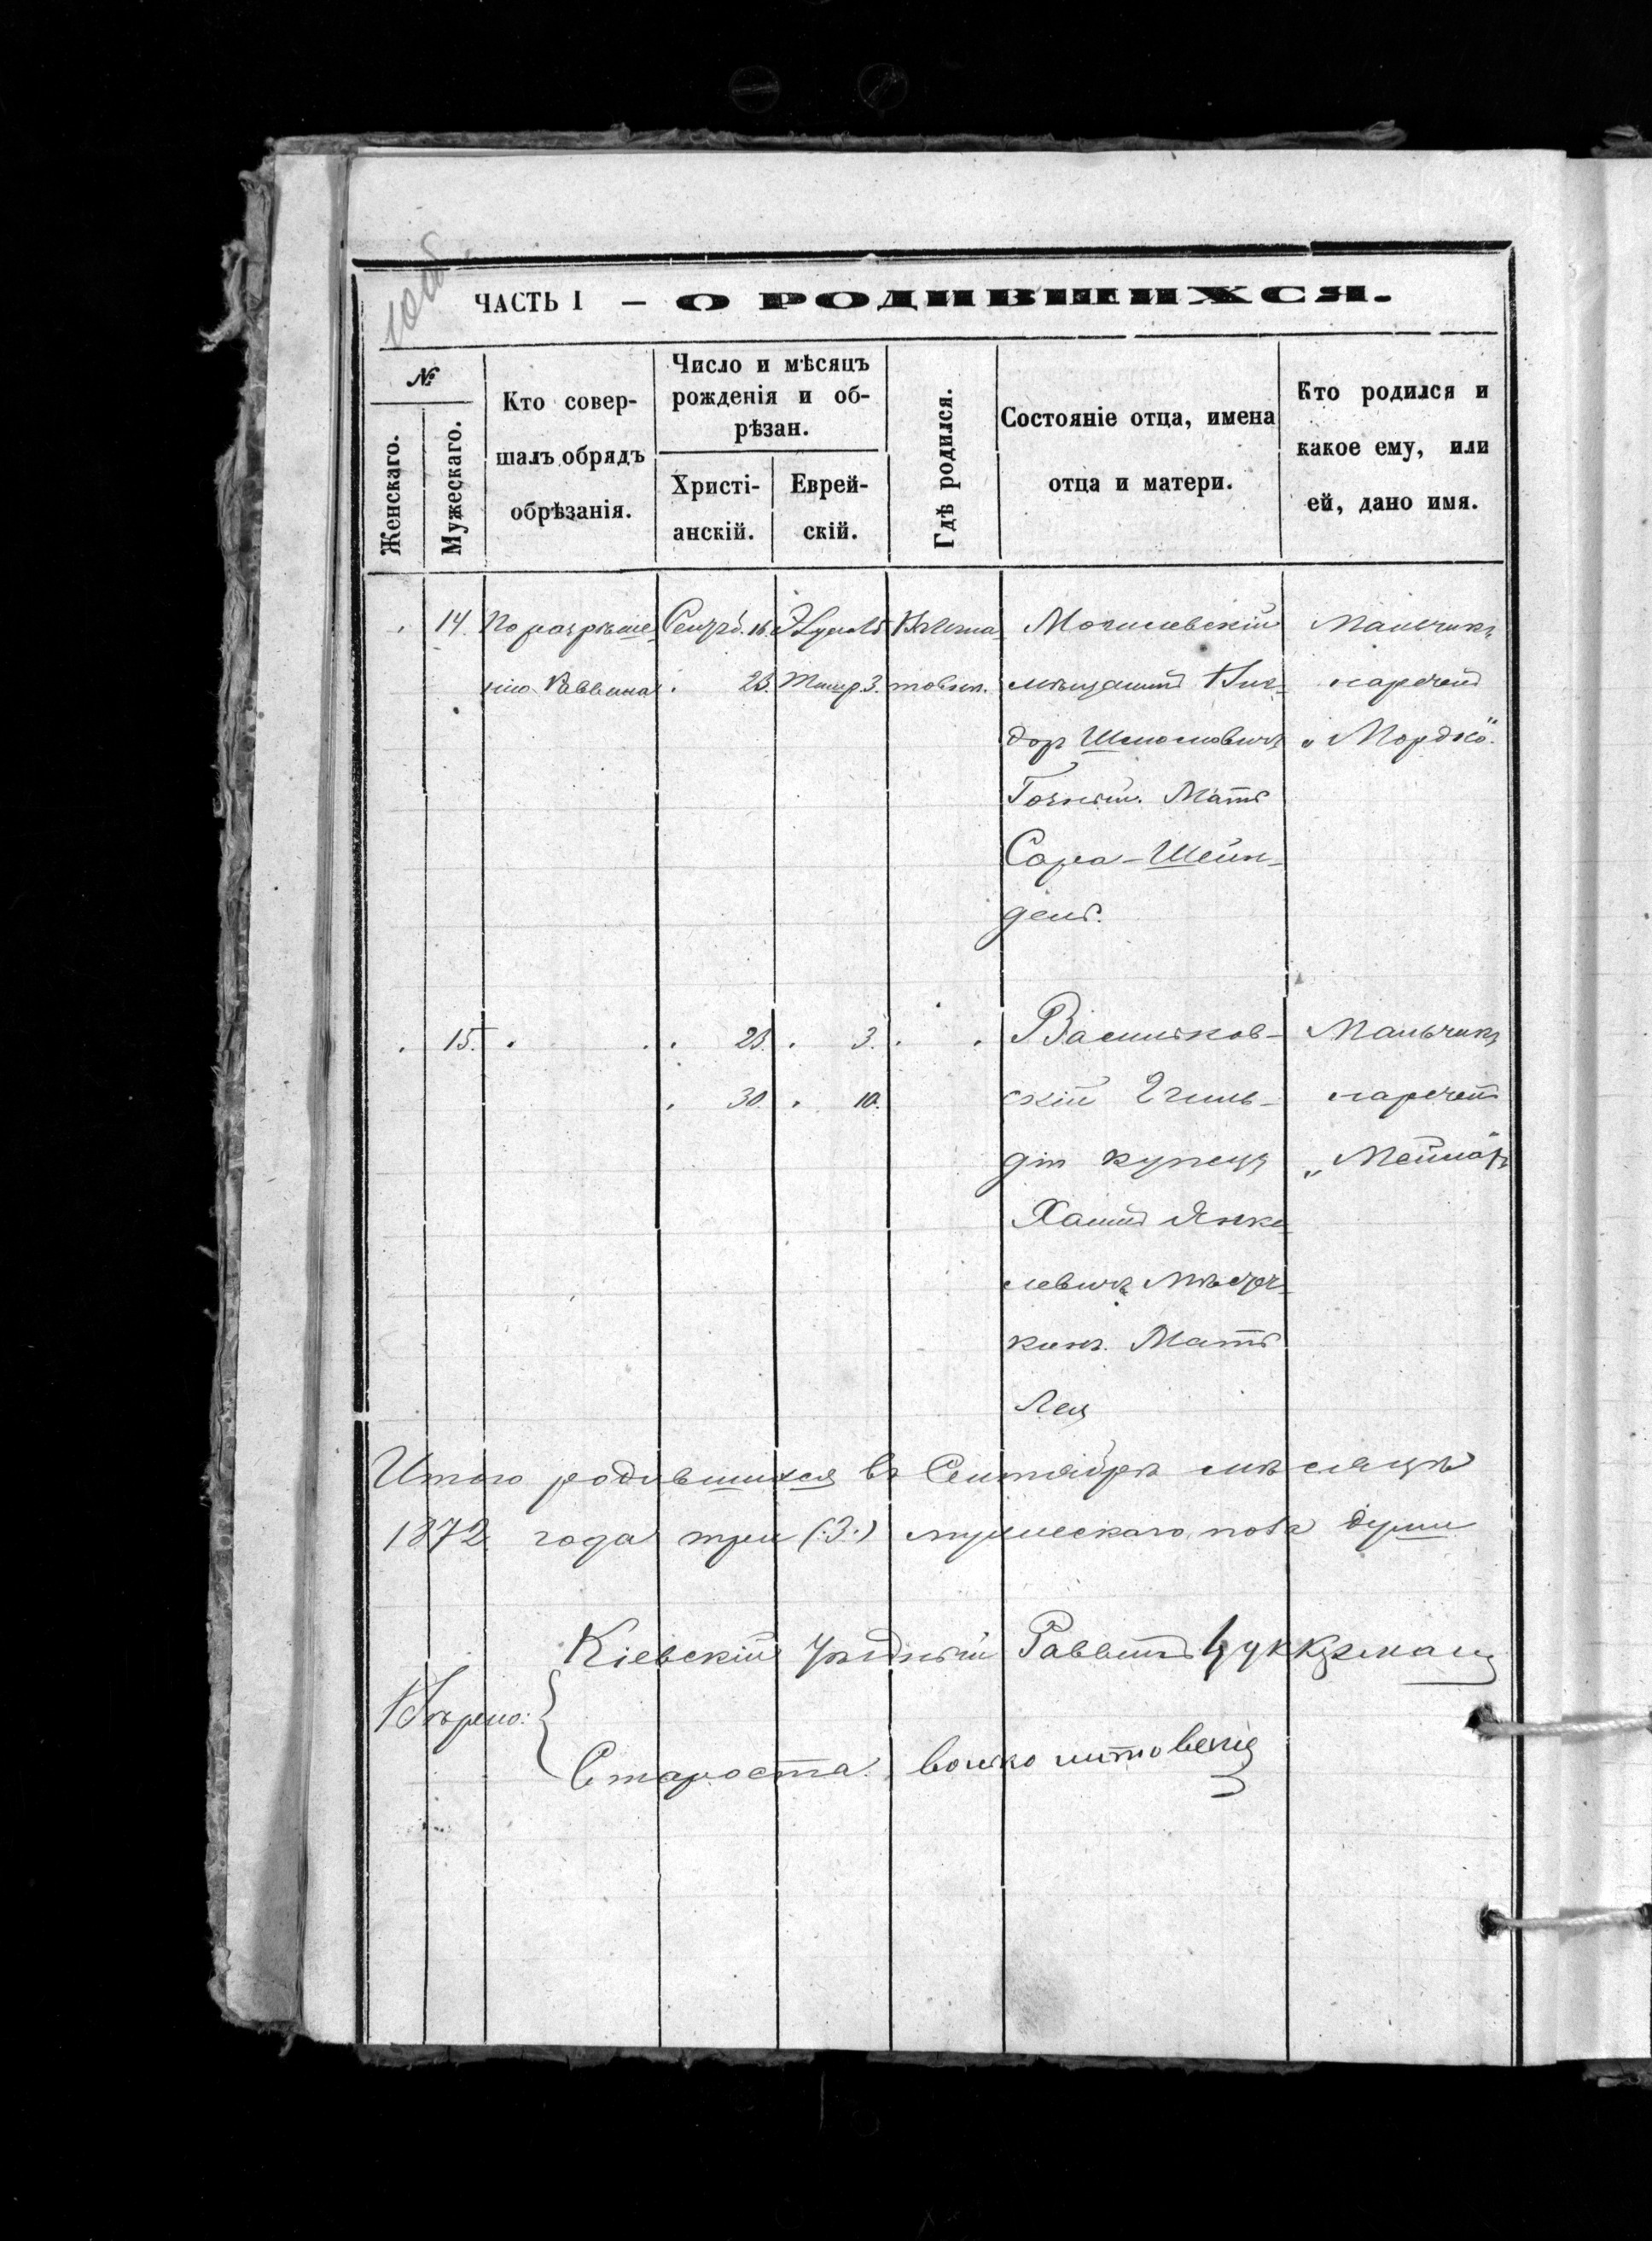 10об
ЧАСТЬ I — О РОДИВШИХСЯ.
№
Женскаго.
Мужескаго.
Кто совер-
шалъ обрядъ
обрѣзанія.
Число и мѣсяцъ
рожденія и об-
рѣзан.
Христі-
анскій.
Еврей-
скій.
Гдѣ родился.
Состояніе отца, имена
отца и матери.
Кто родился и
какое ему, или
ей, дано имя.
14. По разрѣше-
нію Раввина
16.
23. Тишр. 3.
Могилевскій
мѣщанинъ
доръ Шмюловичъ
Мать
Сара-Шейн-
дель.
Мальчикъ
нареченъ
„Мордко".
15. 23. 3.
30. 10.
Васильков-
скій 2 гиль-
діи купецъ
Хаимъ Янке-
левичъ
кинъ. Мать
Лея
Мальчикъ
нареченъ
Итого родившихся въ Сентябрѣ мѣсяцѣ
1872 года три (:3:) мужескаго пола души
Кіевскій Уѣздный Раввинъ Цуккерманъ
Вѣрно:
Староста